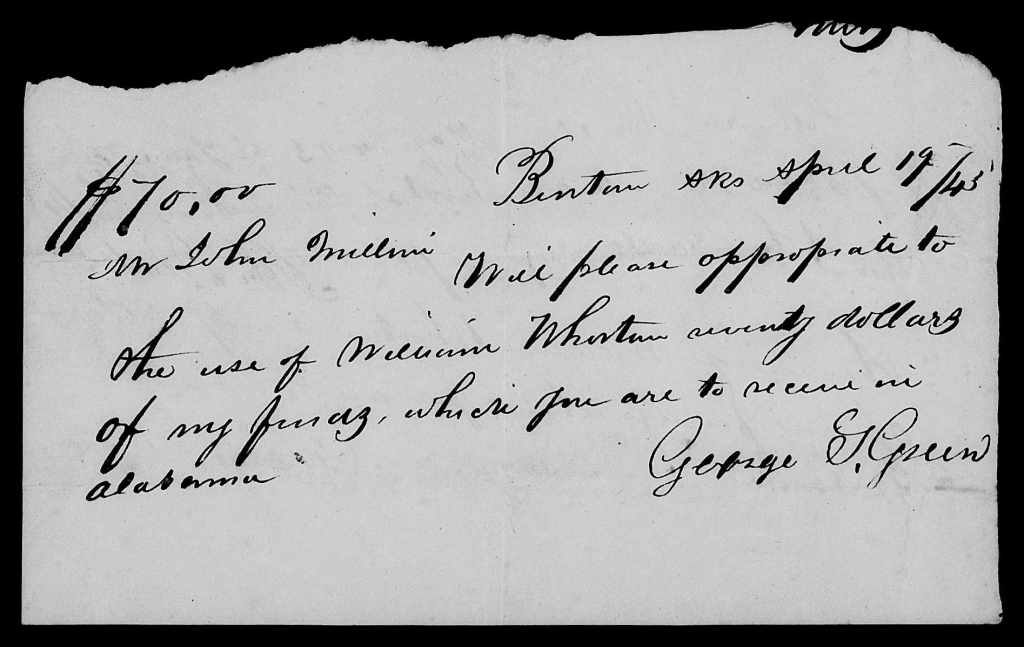 $70,00 Benton Aks April 19/45
Mr John Will please appropriate to
the use of William Whorton seventy dollars
of my funds, which you are to receive in
alabama
George S. Green